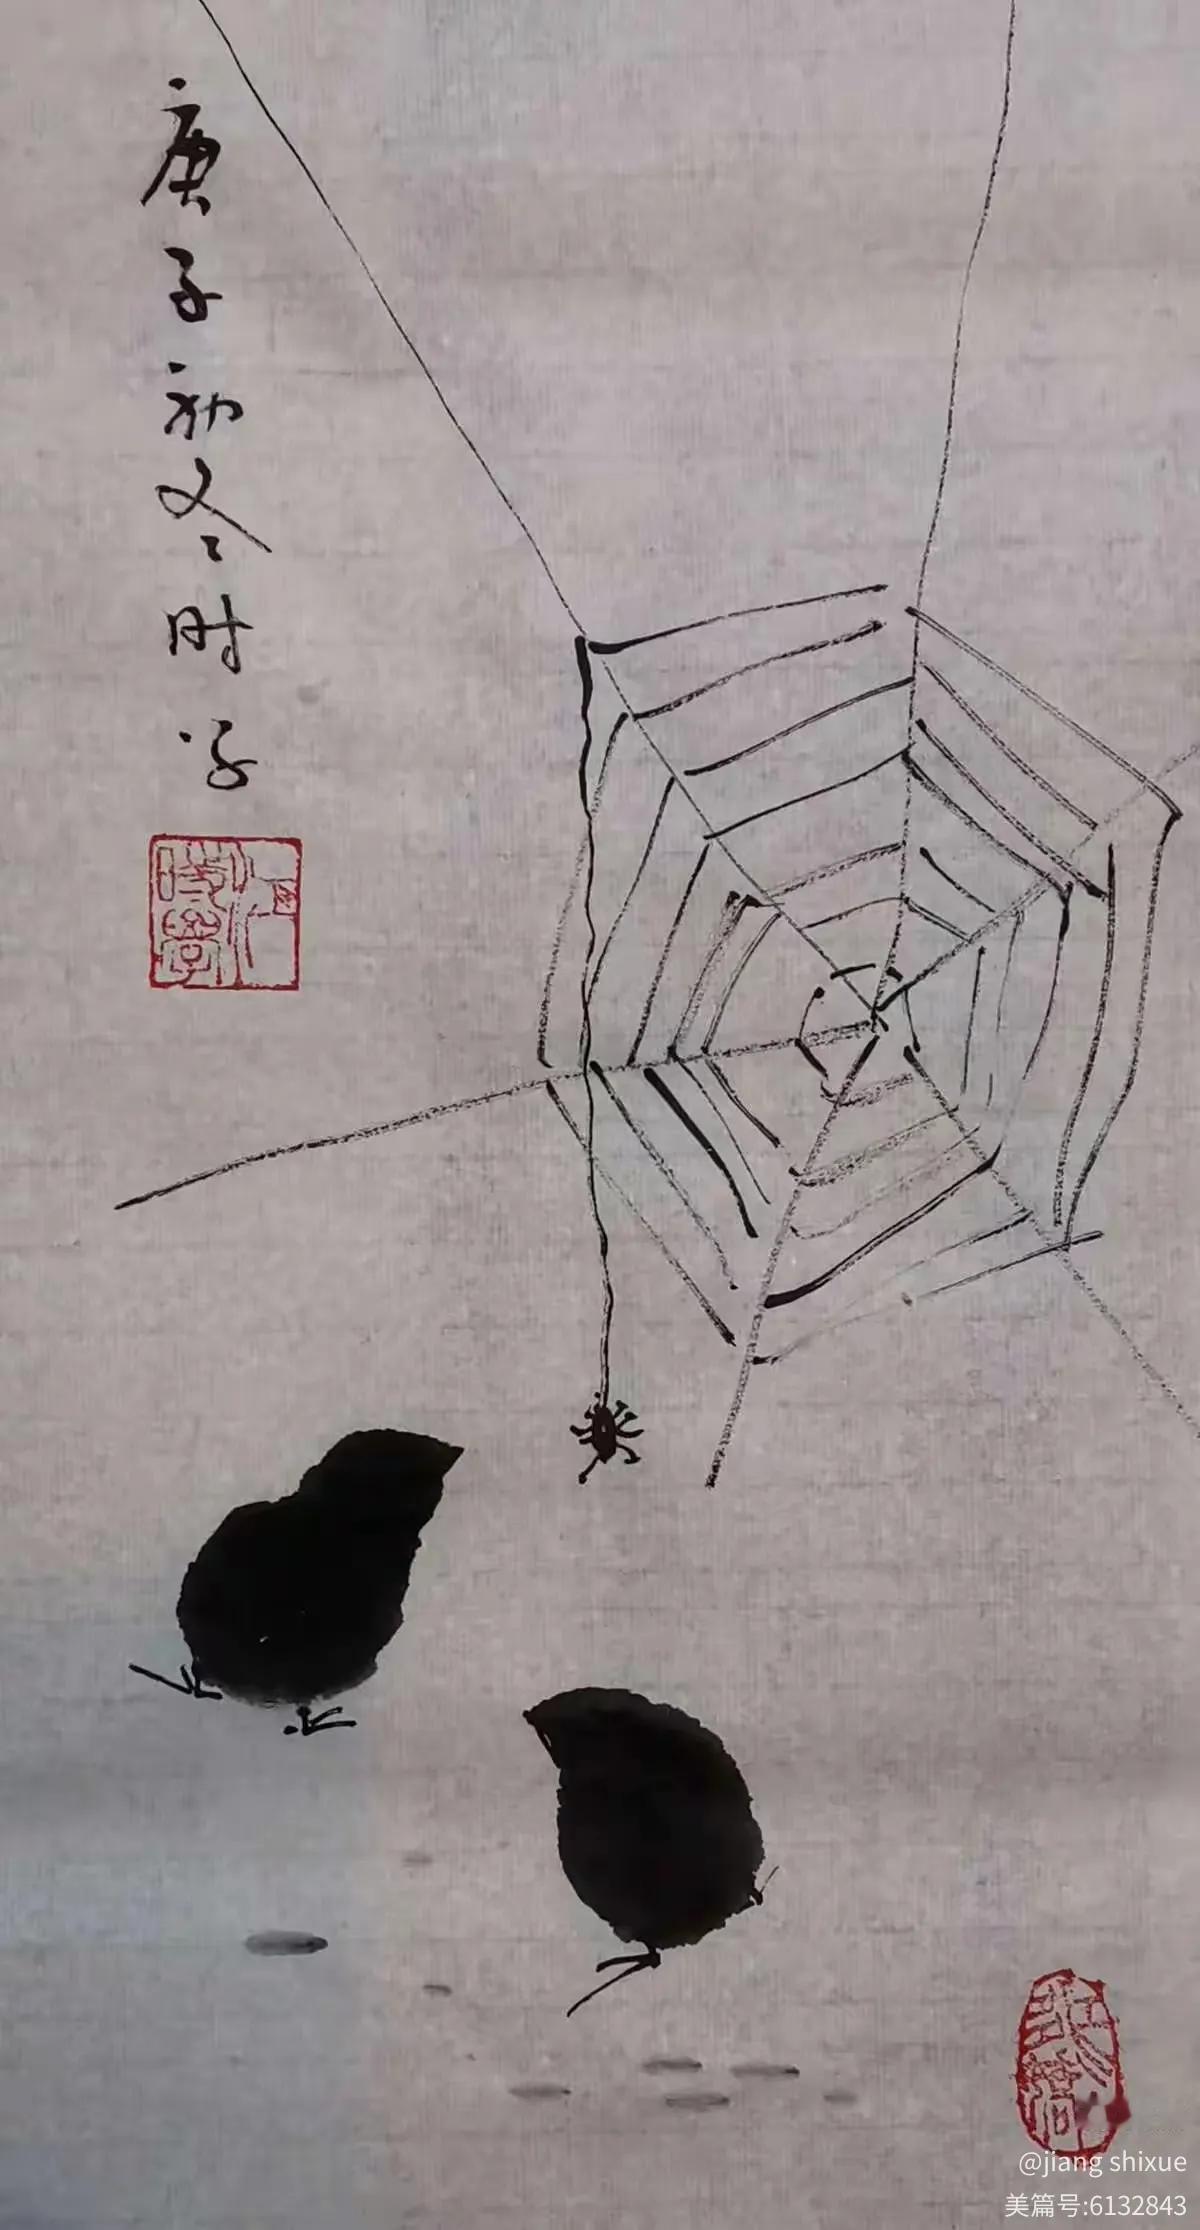 庚子初冬时学
江時學
@jiang shixue
美篇号:6132843